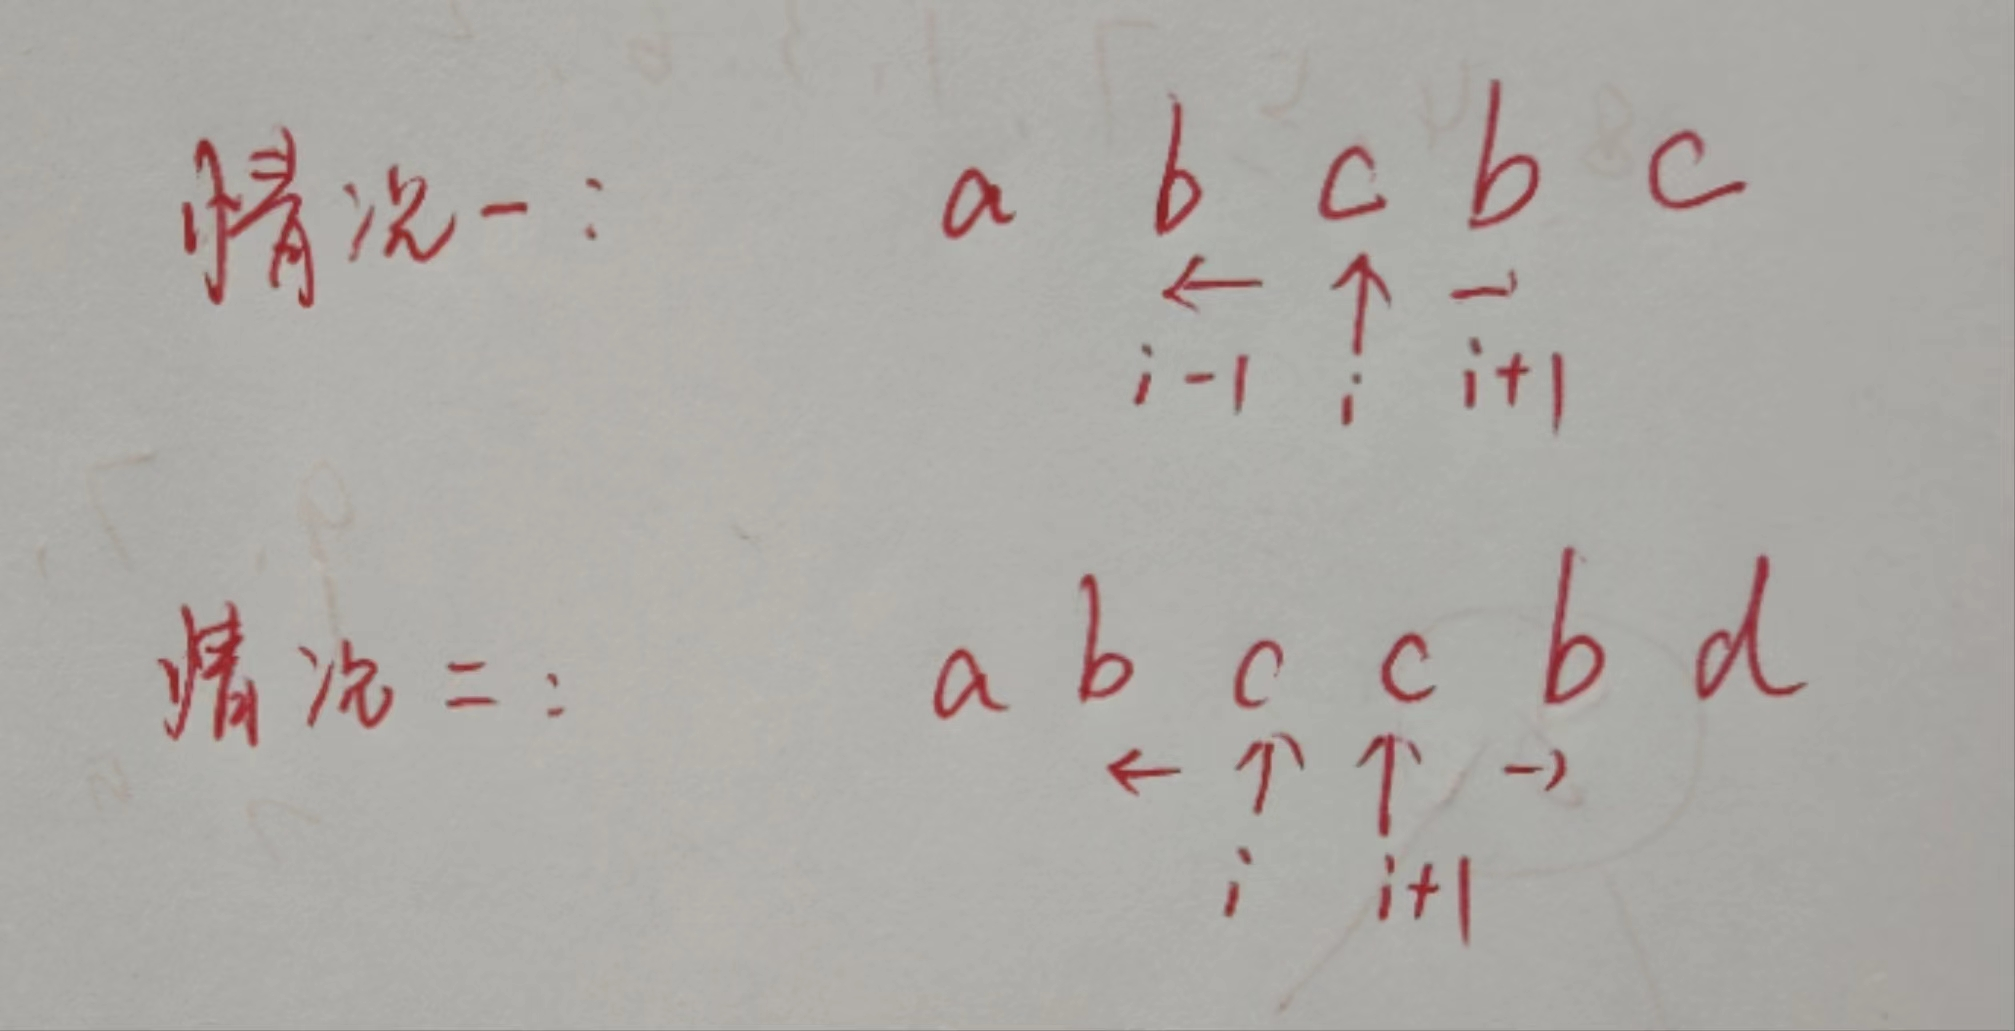 情况一: a b c b c
← ↑ →
i-1 i i+1
情况二: a b c c b d
← ↑ ↑ →
i i+1